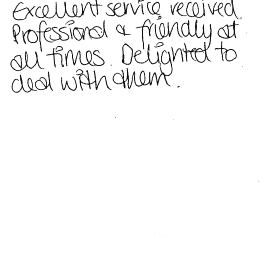 Excellent service received.
Professional & friendly at
all times. Delighted to
deal with them.